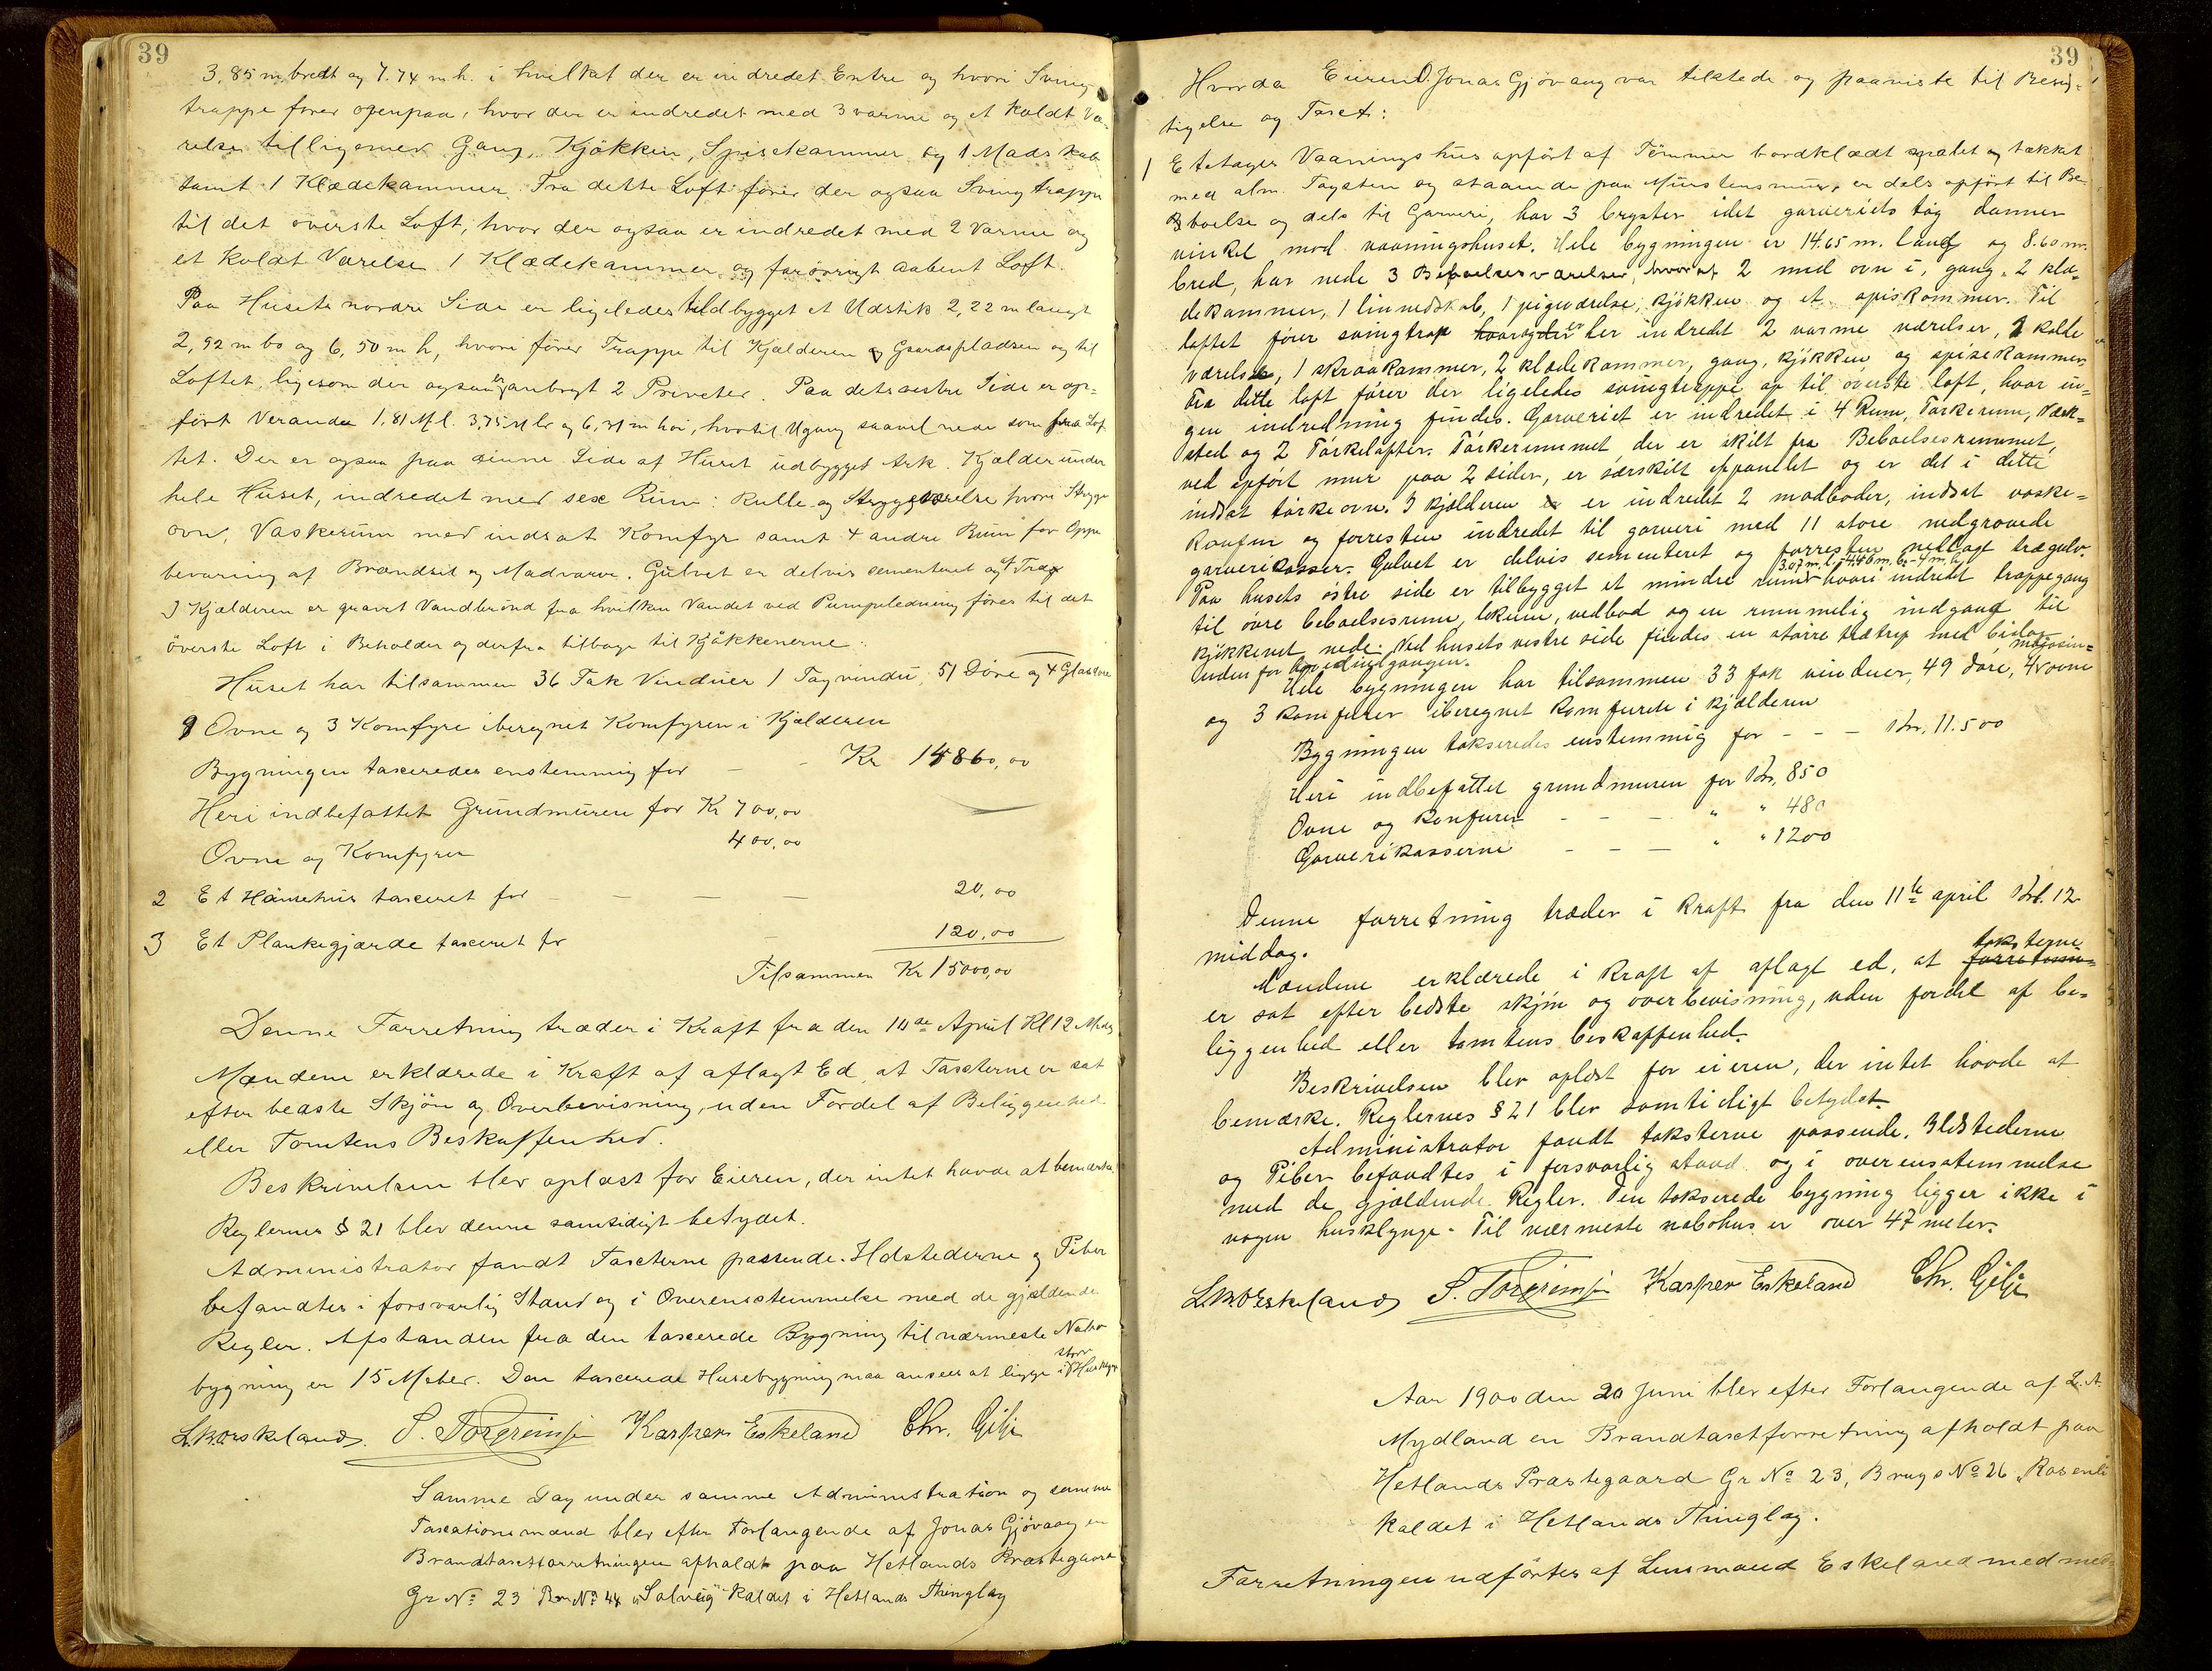 39
3,85 m bredt og 7.74 m h. i hvilket der er indredet Entre og hvori Sving
trappe fører ovenpaa, hvor der er indredet med 3 varme og et koldt Væ-
relse tilligemed Gang, Kjøkken, Spisekammer og 1 Madskab
samt 1 Klædekammer. Fra dette Loft fører der ogsaa Svingtrappe
til det øverste Loft, hvor der ogsaa er indredet med 2 varme og
et koldt Værelse 1 Klædekammer og forøvrigt aabent Loft.
Paa Husets nordre Side er ligeledes tilbygget et Udstik 2,22 m langt
2,92 m br og 6,50 m h, hvori fører Trappe til Kjælderen og Gaardspladsen og til
Loftet, ligesom der ogsaa er anbragt 2 Priveter. Paa dets vestre Side er op-
ført Veranda 1,81 M l. 3,75 M br og 6,31 m høi, hvortil Udgang saavel nede som fra Lof
tet. Der er ogsaa paa denne Side af Huset udbygget Ark. Kjælder under
hele Huset, indredet med sex Rum: Rulle og Strygeværelse hvori Stryge
ovn, Vaskerum med indsat Komfyr samt 4 andre Rum for Oppe
bevaring af Brændsel og Madvarer. Gulvet er delvis sementeret og af Træ
I Kjælderen er gravet Vandbrønd fra hvilken Vandet ved Pumpeledning føres til det
øverste Loft i Beholder og derfra tilbage til Kjøkkenerne.
Huset har tilsammen 36 Fak Vinduer 1 Tagvindu, 51 Døre og 4 Glasdøre
9 Ovne og 3 Komfyre iberegnet Komfyren i Kjælderen
Bygningen taxeredes enstemmig for - - Kr 14860,00
Heri indbefattet Grundmuren for Kr 700,00
Ovne og Komfyrer 400,00
2 Et Hønsehus taxeret for - - - - 20,00
3 Et Plankegjærde taxeret for - 120,00
Tilsammen Kr 15000,00
Denne Forretning træder i Kraft fra den 10de April Kl 12 Mdg
Mændene erklærede i Kraft af aflagt Ed, at Taxterne er sat
efter bedste Skjøn og Overbevisning, uden Fordel af Beliggenhed
eller Tomtens Beskaffenhed.
Beskrivelsen blev oplæst for Eieren, der intet havde at bemærke
Reglernes § 21 blev denne samtidigt betydet.
Administrator fandt Taxterne passende. Ildstederne og Piber
befandtes i forsvarlig Stand og i Overensstemmelse med de gjældende
Regler. Afstanden fra den taxerede Bygning til nærmeste Nabo
bygning er 15 Meter. Den taxerede Husebygning maa ansees at ligge i stor Huskly
L. Eskeland. S. Torgrimsen Kasper Eskeland Chr. Gilje
Samme Dag under samme Administration og samme
Taxationsmænd blev efter Forlangende af Jonas Gjøvaag en
Brandtaxtforretningen afholdt paa Hetlands Præstegaard
Gr No 23 Br No 44 "Solveig" kaldet i Hetlands Thinglag
39
Hvorda Eieren O. Jonas Gjøvaag var tilstede og paaviste til Besig-
tigelse og Taxt:
1 Et etages Vaaningshus opført af Tømmer bordklædt malet og tækket
med alm. Tagsten og staaende paa Murstensmur, er dels opført til Be-
boelse og dels til Garveri, har 3 bryster idet garveriets tag danner
vinkel mod vaaningshuset. Hele bygningen er 14.65 m. lang og 8.60 m.
bred, har nede 3 Beboelsesværelser, hvoraf 2 med ovn i, gang, 2 klæ-
dekammer, 1 linnedskab, 1 pigeværelse, kjøkken og et spiskammer. Til
loftet fører svingtrap hvorogder er her indredet 2 varme værelser, 2 kolde
værelser, 1 skraakammer, 2 klædekammer, gang, kjøkken og spisekammer.
Fra dette loft fører der ligeledes svingtrappe op til øverste loft, hvor in-
gen indredning findes. Garveriet er indredet i 4 Rum, Tørkerum, Værk-
sted og 2 Tørkelofter. Tørkerummet der er skilt fra Beboelsesrummet
ved opført mur paa 2 sider, er særskilt oppanelet og er det i dette
indsat tørkeovn. I kjælderen er indredet 2 madboder, indsat vaske-
komfur og forresten indredet til garveri med 11 store nedgravede
garverikasser. Gulvet er delvis sementeret og forresten nedlagt trægulv.
Paa husets østre side er tilbygget et mindre rum 3.07 m. l. - 4.46 m. b. - 4 m. h. hvori indredet trappegang
til øvre beboelsesrum, lokum, vedbod og en rummelig indgang til
kjøkkenet nede. Ved husets vestre side findes en større trætrap med
uden for hovedindgangen.
Hele bygningen har tilsammen 33 fak vinduer, 49 døre, 4 ovne
og 3 komfurer iberegnet komfuret i kjælderen
Bygningen takseredes enstemmig for - - - Kr. 11.500
Heri indbefattet grundmuren for Kr. 850
Ovne og komfurer - - - " " 480
Garverikasserne - - - " " 1200
Denne forretning træder i kraft fra den 11te april Kl. 12
middag.
Mændene erklærede i kraft af aflagt ed, at taksterne
er sat efter bedste skjøn og overbevisning, uden fordel af be-
liggenhed eller tomtens beskaffenhed.
Beskrivelsen blev oplæst for eieren, der intet havde at
bemærke. Reglernes § 21 blev samtidigt betydet.
Administrator fandt taksterne passende. Ildstederne
og Piber befandtes i forsvarlig stand og i overensstemmelse
med de gjældende Regler. Den takserede bygning ligger ikke i
nogen husklynge. Til nærmeste nabohus er over 47 meter.
L. Eskeland S. Torgrimsen Kasper Eskeland Chr. Gilje
Aar 1900 den 20 Juni blev efter Forlangende af L. A.
Mydland en Brandtaxtforretning afholdt paa
Hetlands Præstegaard Gr No 23, Brugs No 26 "Rosenli
kaldet i Hetlands Thinglag.
Forretningen udførtes af Lensmand Eskeland med med